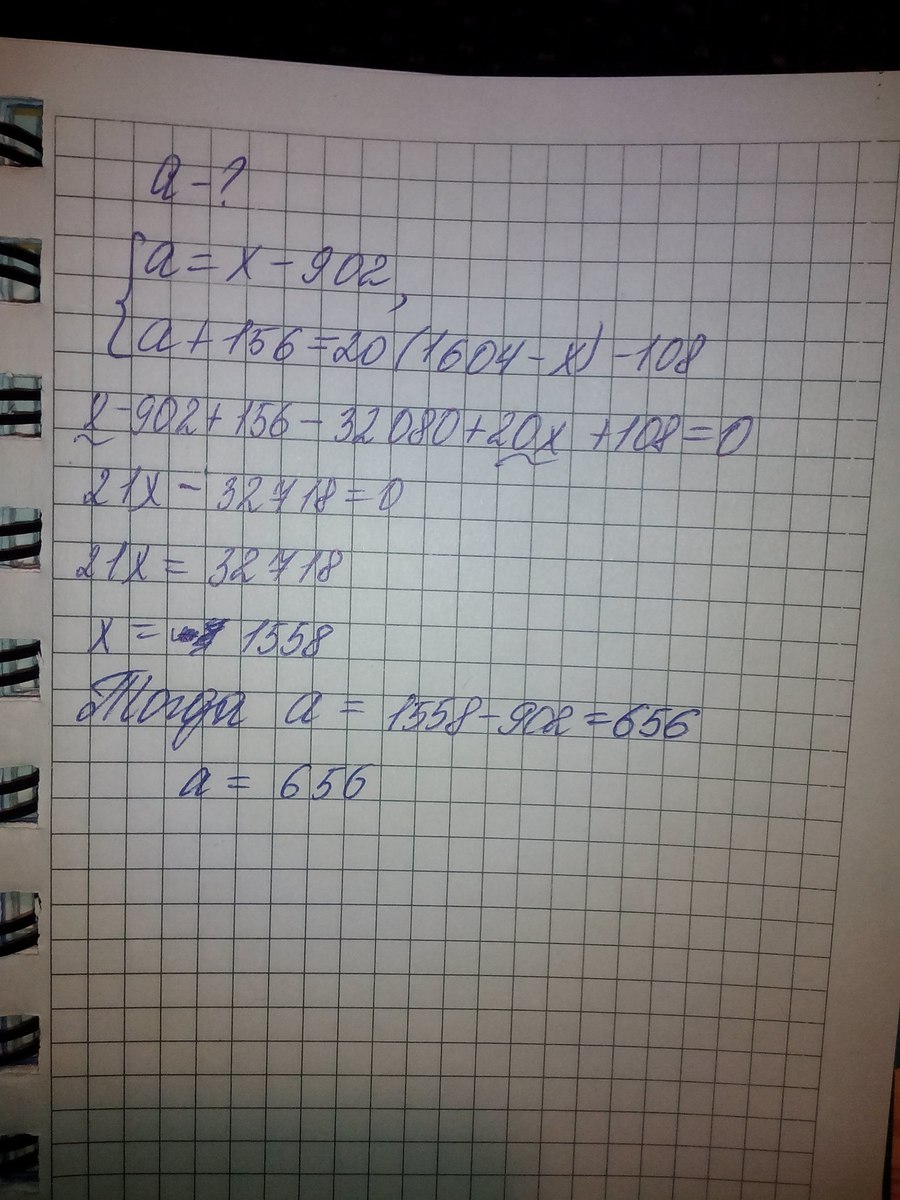 a - ?
{ a = x - 902,
a + 156 = 20 (1604 - x) - 108
x - 902 + 156 - 32080 + 20x + 108 = 0
21x - 32718 = 0
21x = 32718
x = 1558
Тогда a = 1558 - 902 = 656
a = 656